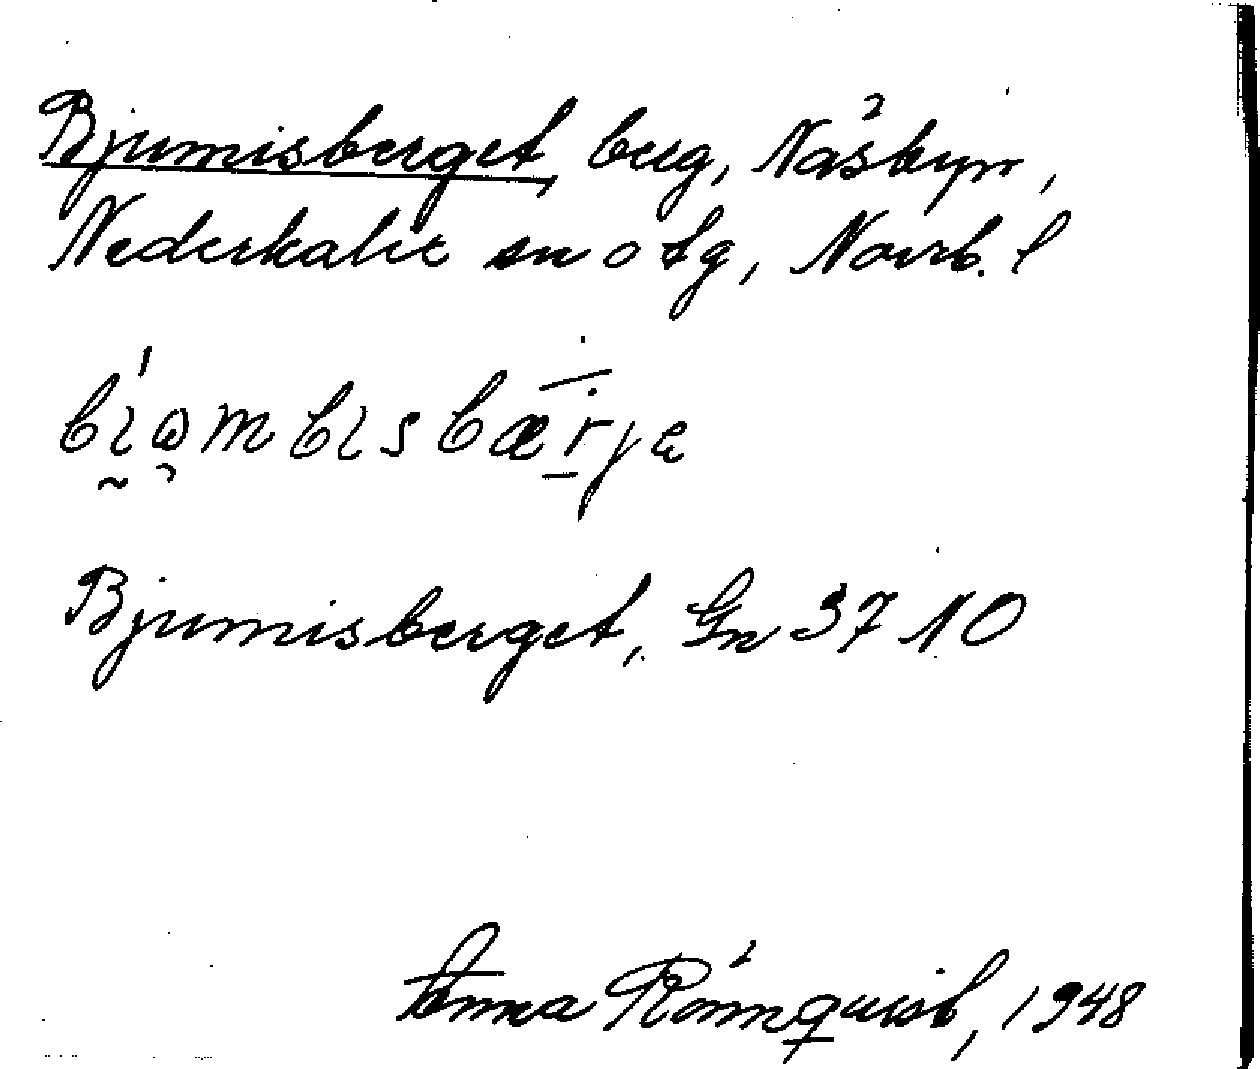 Bjumisberget, berg, Näsbyn,
Nederkalix sn o tg, Norrb. l
bi̯ɷmbɩsbær̄jɛ
Bjumisberget, Gn 37 10
Anna Rönnquist, 1948